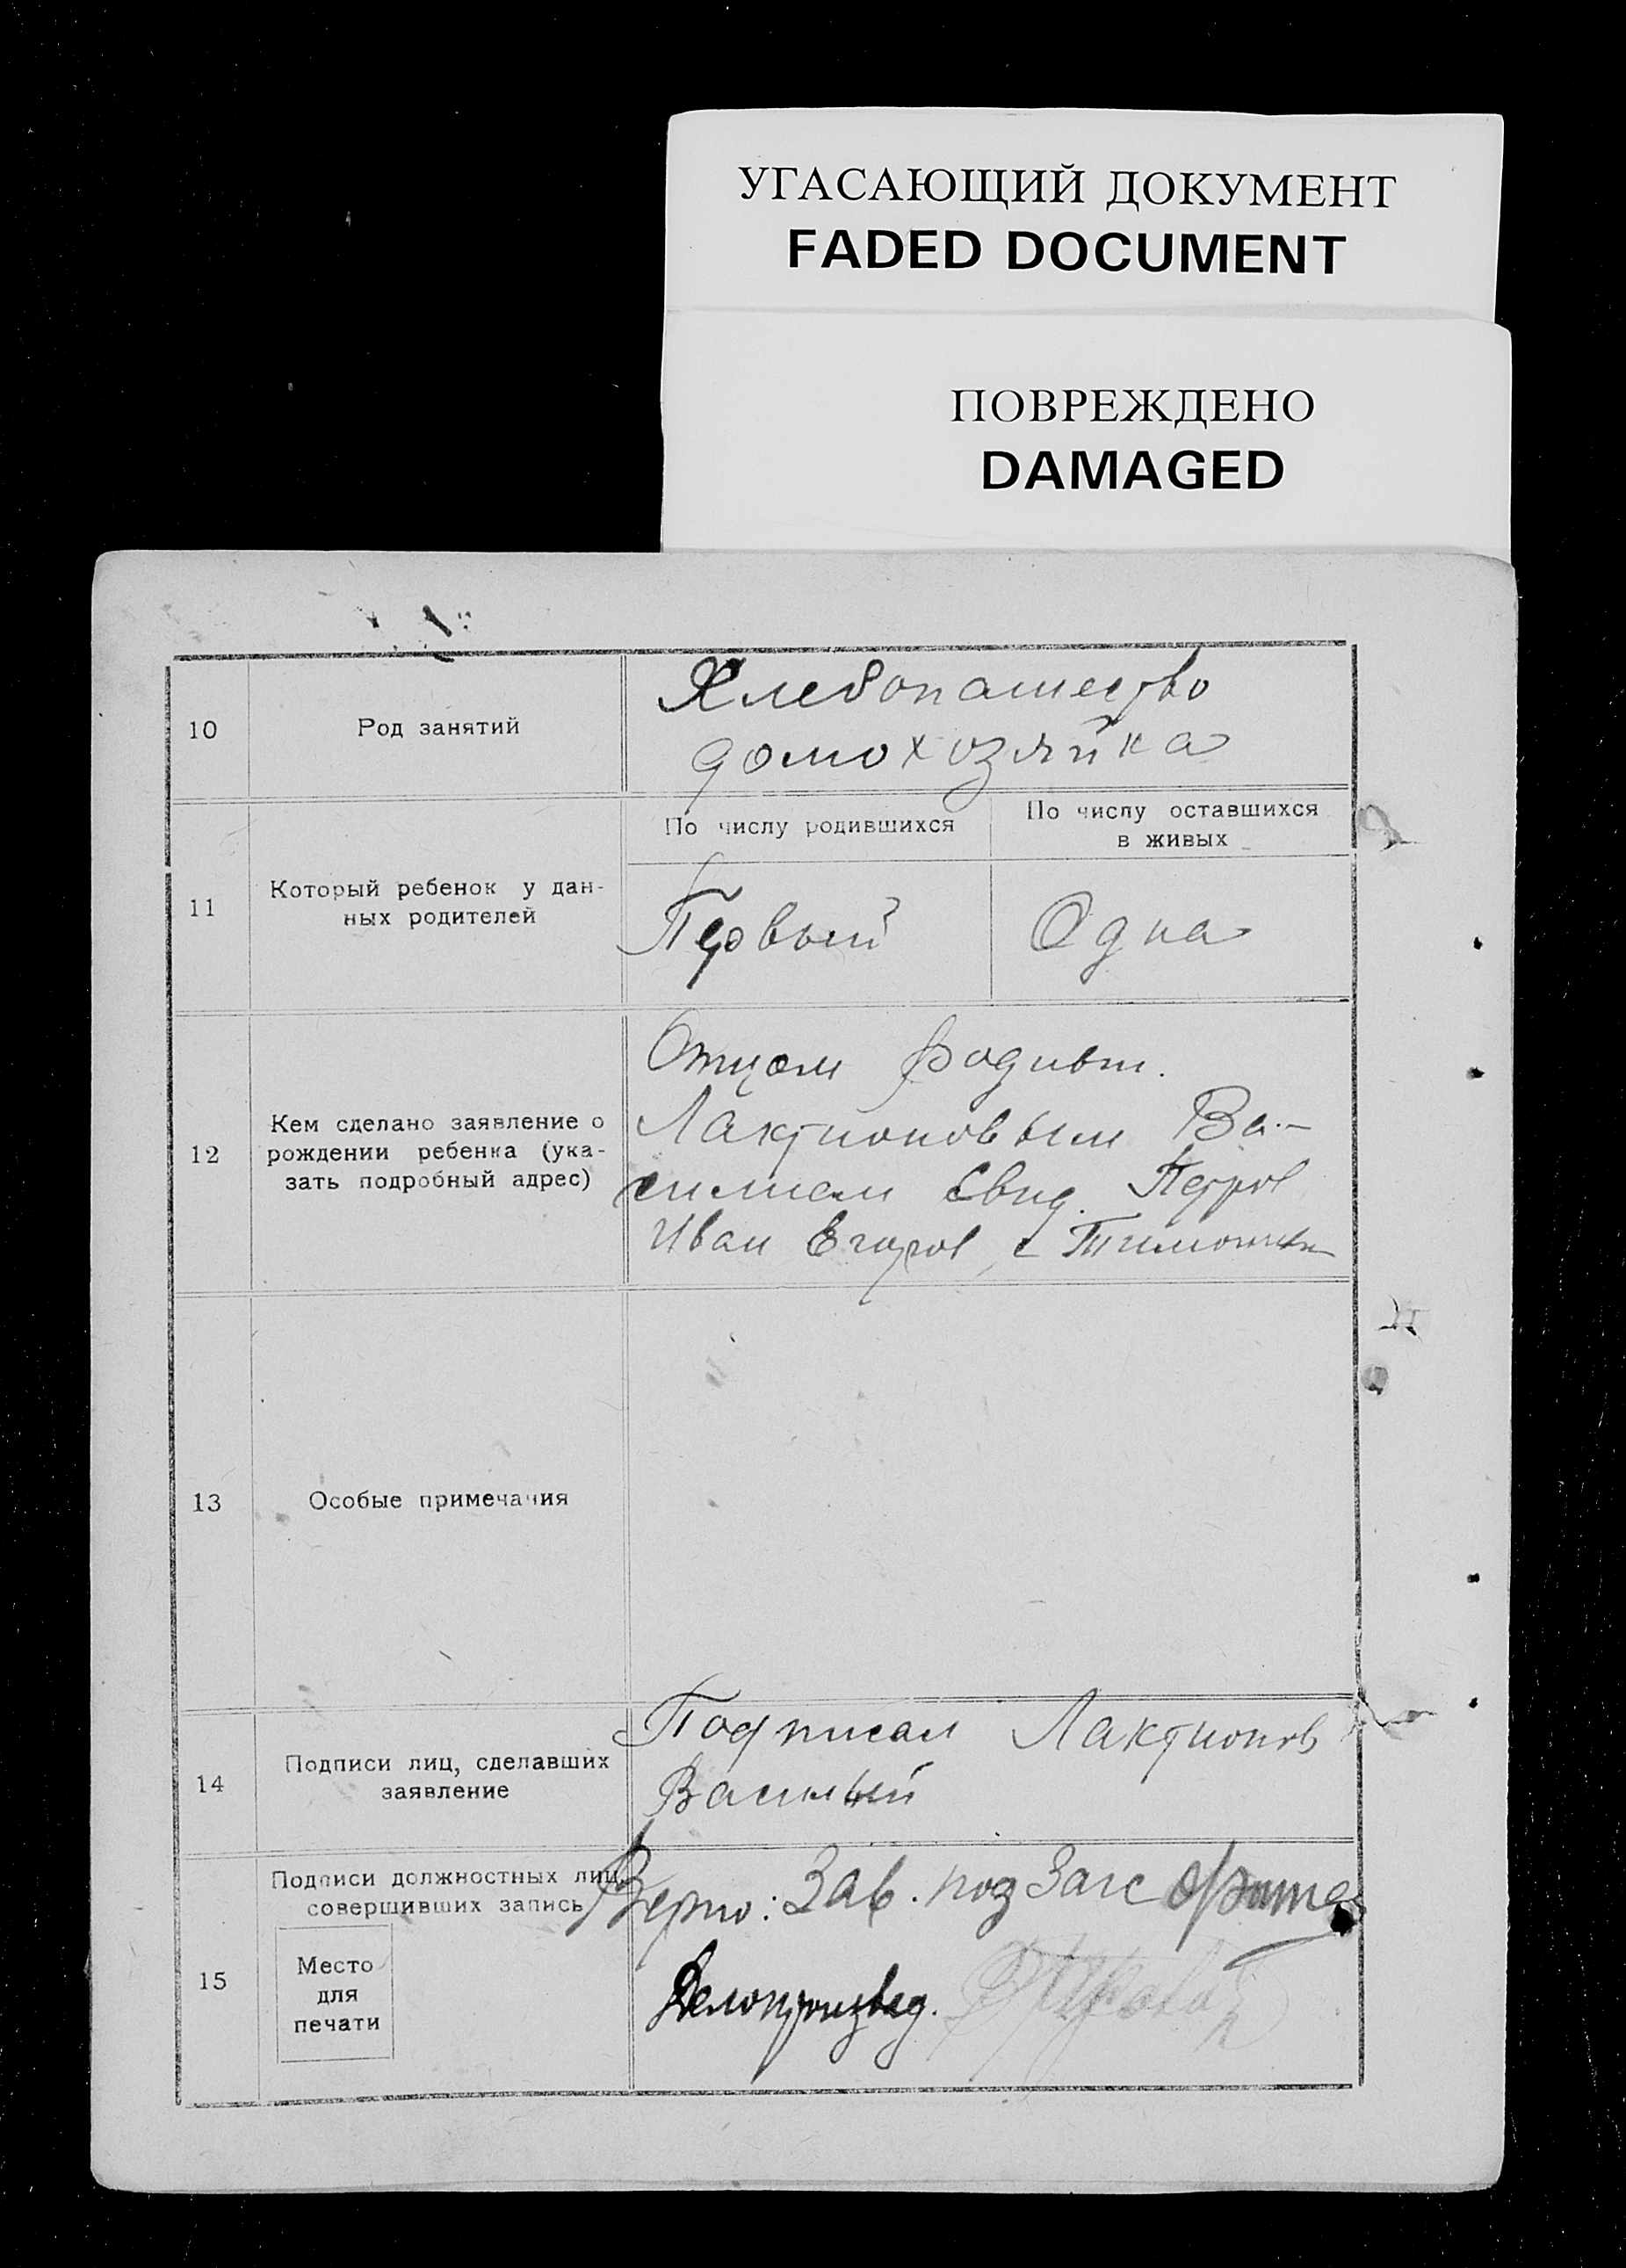 УГАСАЮЩИЙ ДОКУМЕНТ
FADED DOCUMENT
ПОВРЕЖДЕНО
DAMAGED
10
Род занятий
Хлебопашество
домохозяйка
11
Который ребенок у дан-
ных родителей
По числу родившихся
По числу оставшихся
в живых
Первый
Одна
12
Кем сделано заявление о
рождении ребенка (ука-
зать подробный адрес)
Отцом родивш.
Лактионовым Ва-
силием Свид. Петров
Иван Егоров с
13
Особые примечания
14
Подписи лиц, сделавших
заявление
Подписал Лактионов
Василий
15
Подписи должностных лиц,
совершивших запись
Место
для
печати
Верно: Зав. под Загс
Делопроизвод.